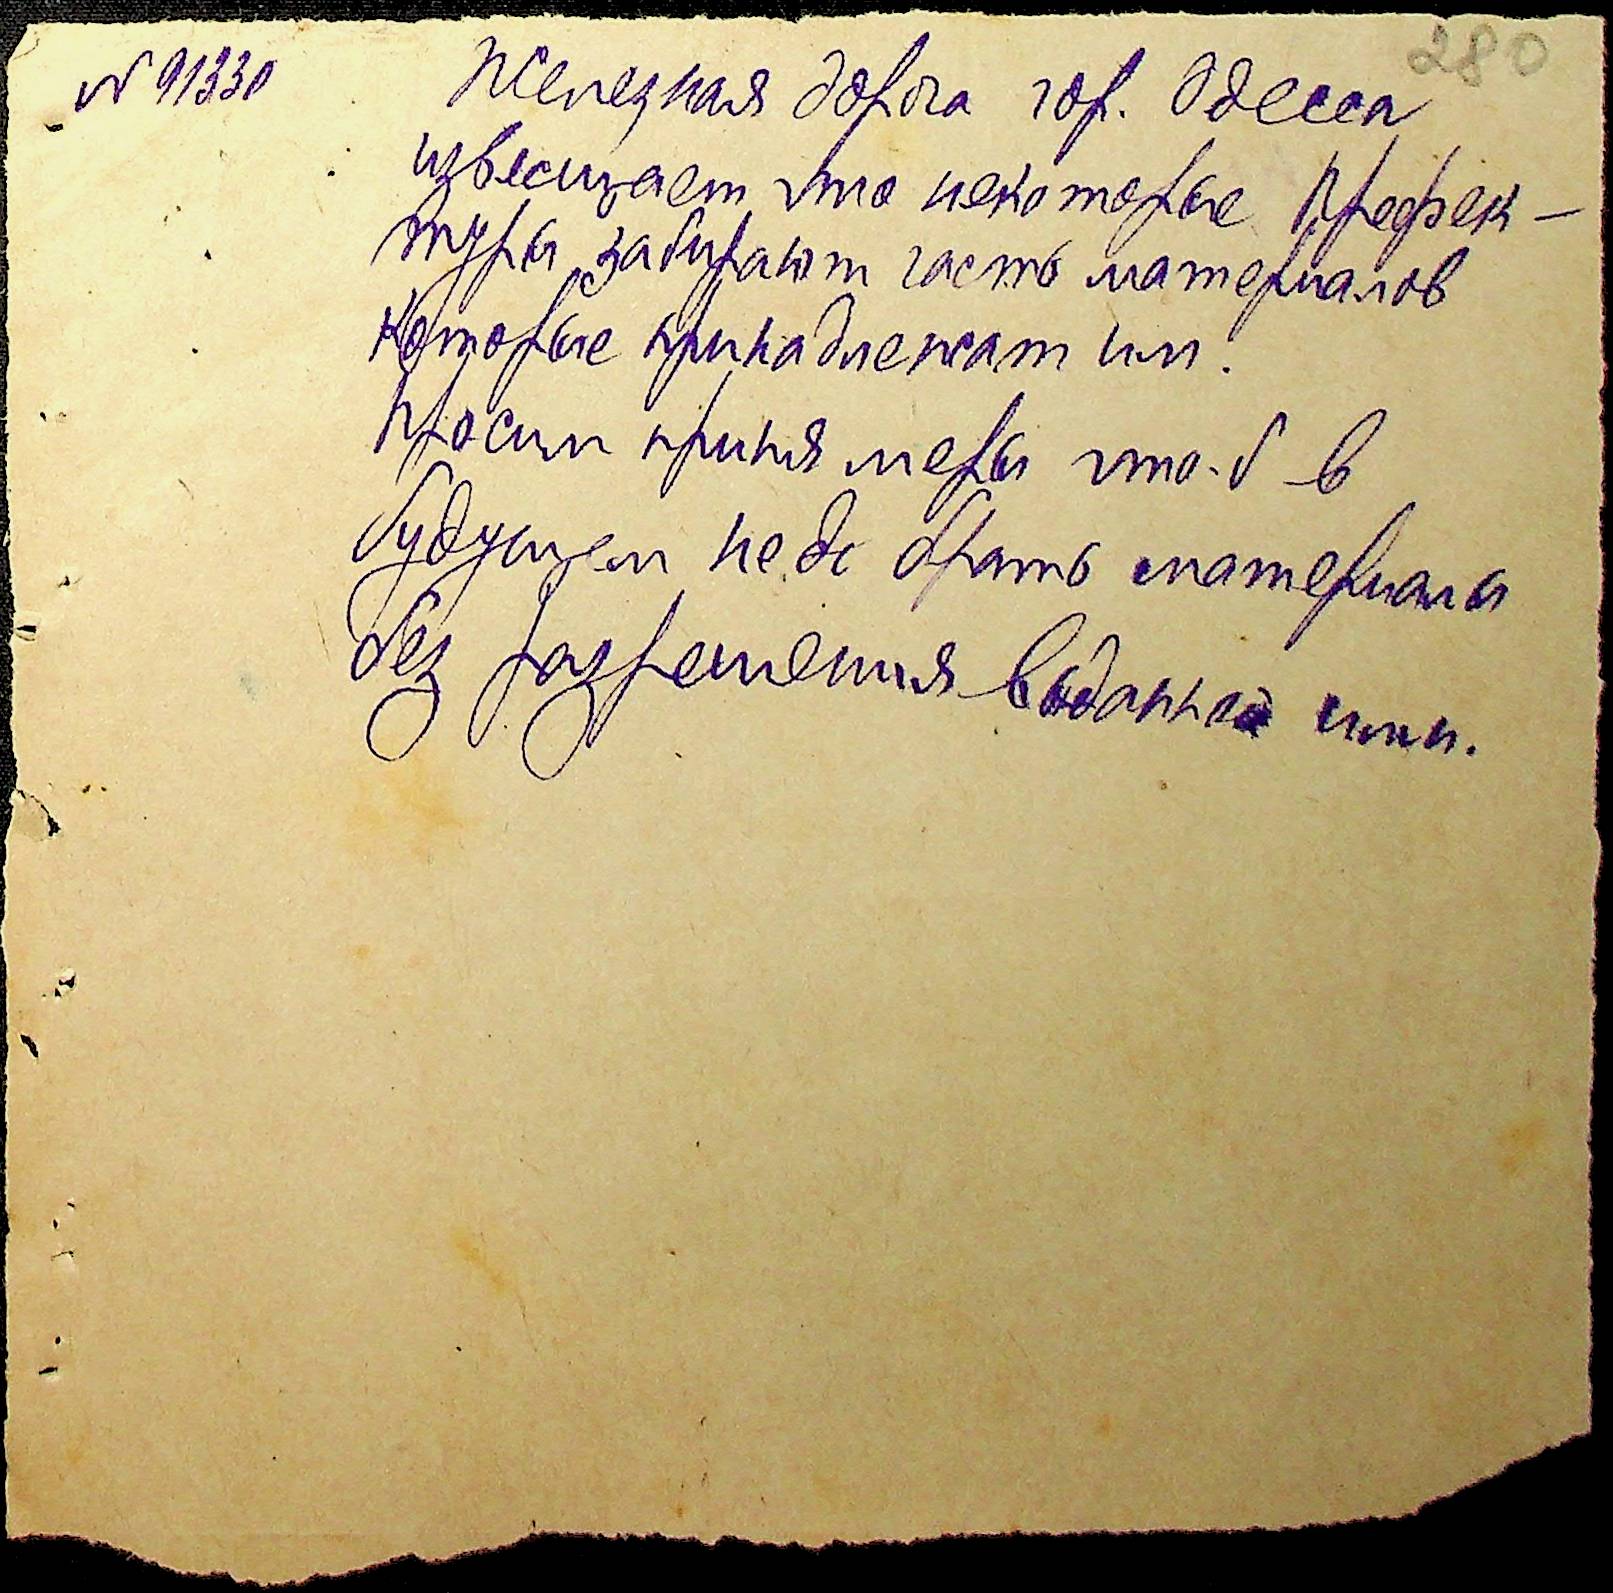 280
№ 91330
Железная дорога гор. Одесса
извесщает что некоторые Префек-
туры забирают часть материалов
которые принадлежат им.
Просим приня меры что-б в
будущем не брать материалы
без разрешения выданной ими.